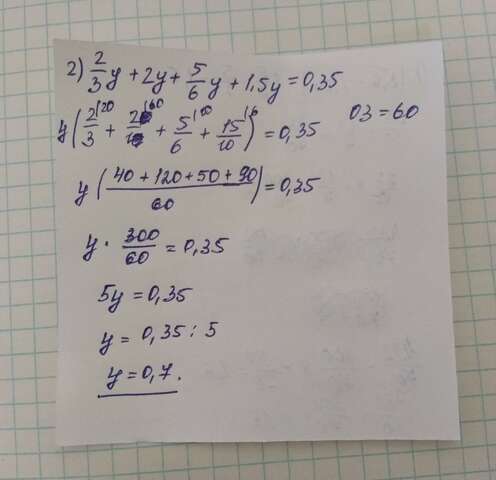 2) 2/3 y + 2y + 5/6 y + 1,5y = 0,35
y(2/3 |20 + 2/1 |60 + 5/6 |10 + 15/10 |6) = 0,35 ОЗ = 60
y((40 + 120 + 50 + 90)/60) = 0,35
y · 300/60 = 0,35
5y = 0,35
y = 0,35 : 5
y = 0,7.